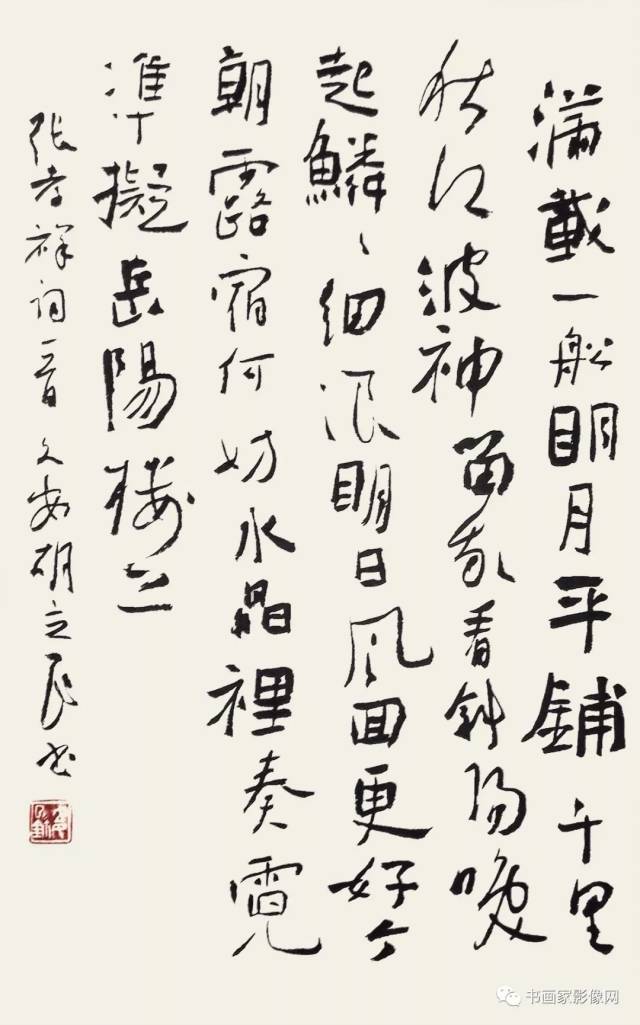 滿載一船明月平鋪千里
秋江波神留我看斜陽喚
起鱗々細浪明日風回更好今
朝露宿何妨水晶裡奏霓
準擬岳陽樓上
張孝祥詞一首 文安胡立民书
书画家影像网